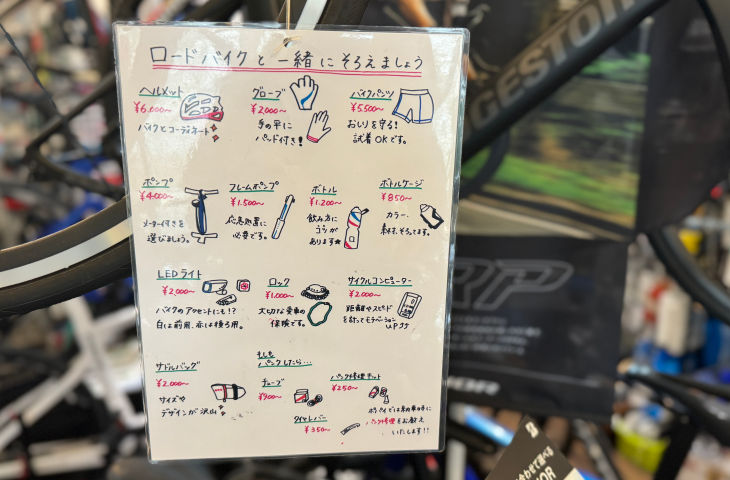 ロードバイクと一緒にそろえましょう
ヘルメット
¥6,000〜
バイクとコーディネート
グローブ
¥2,000〜
手の平に
パッド付き!
バイクパンツ
¥5,500〜
おしりを守る!
試着OKです。
ポンプ
¥4,000〜
メーター付きを
選びましょう。
フレームポンプ
¥1,500〜
応急処置に
必要です。
ボトル
¥1,200〜
飲み方に
コツが
あります★
ボトルケージ
¥850〜
カラー、
素材、そろってます。
LEDライト
¥2,000〜
バイクのアクセントにも!?
白は前用、赤は後ろ用。
ロック
¥1,000〜
大切な愛車の
保険です。
サイクルコンピューター
¥2,000〜
距離やスピード
を計ってモチベーション
UP
サドルバッグ
¥2,000〜
サイズや
デザインが沢山
もしも
パンクしたら…
チューブ
¥900〜
タイヤレバー
¥350〜
パンク修理キット
¥250〜
パンク修理をお教え
いたします!!
GESTON
RP